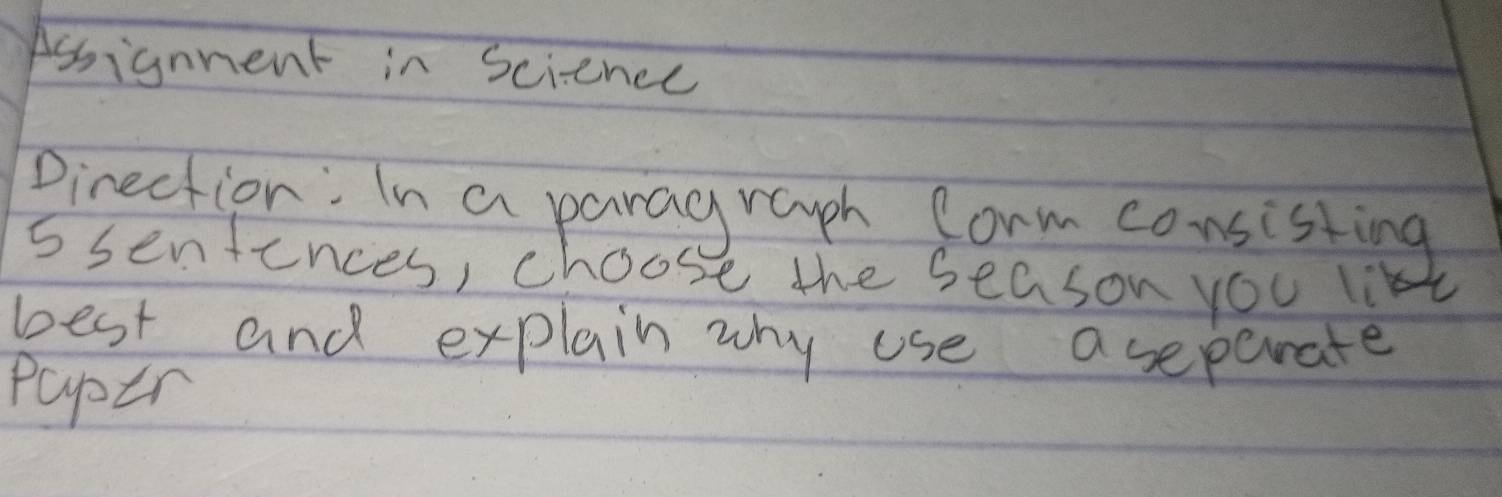 Assignment in Science
Direction: In a paragraph form consisting
5 sentences, choose the season you like
best and explain why use a separate
Paper